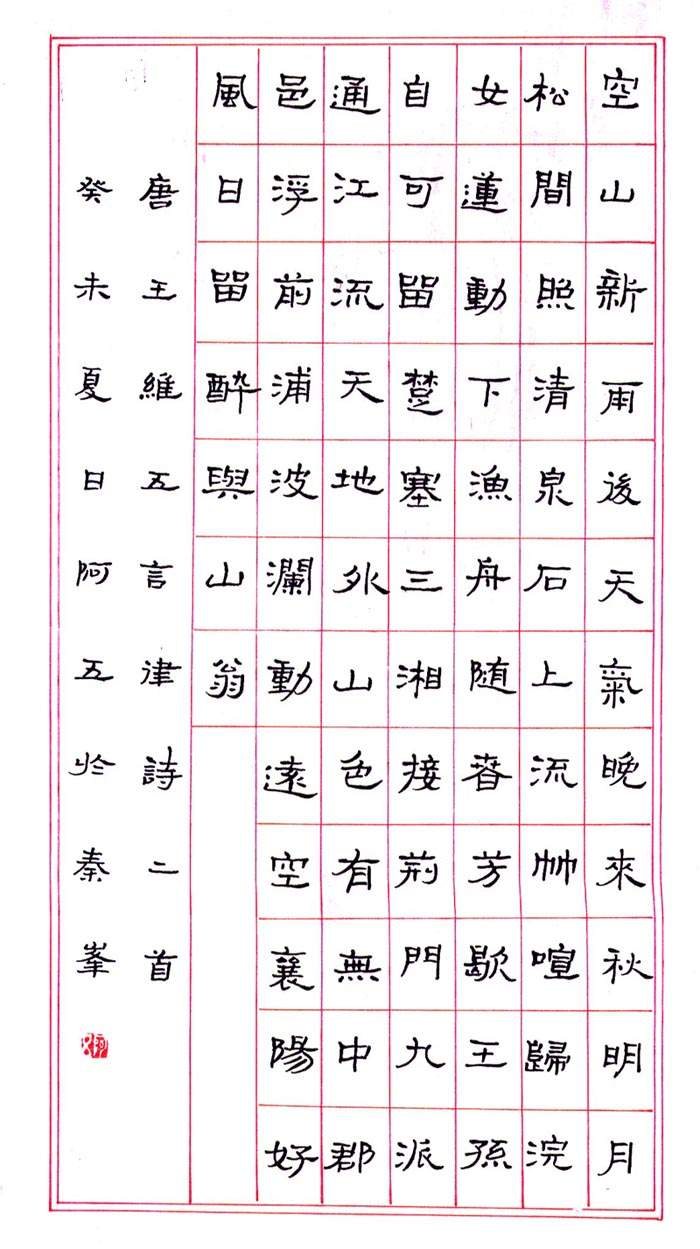 空山新雨後天氣晚來秋明月
松間照清泉石上流竹喧歸浣
女蓮動下漁舟随春芳歇王孫
自可留楚塞三湘接荊門九派
通江流天地外山色有無中郡
邑浮前浦波瀾動遠空襄陽好
風日留醉與山翁
唐王維五言律詩二首
癸未夏日阿五於秦峯